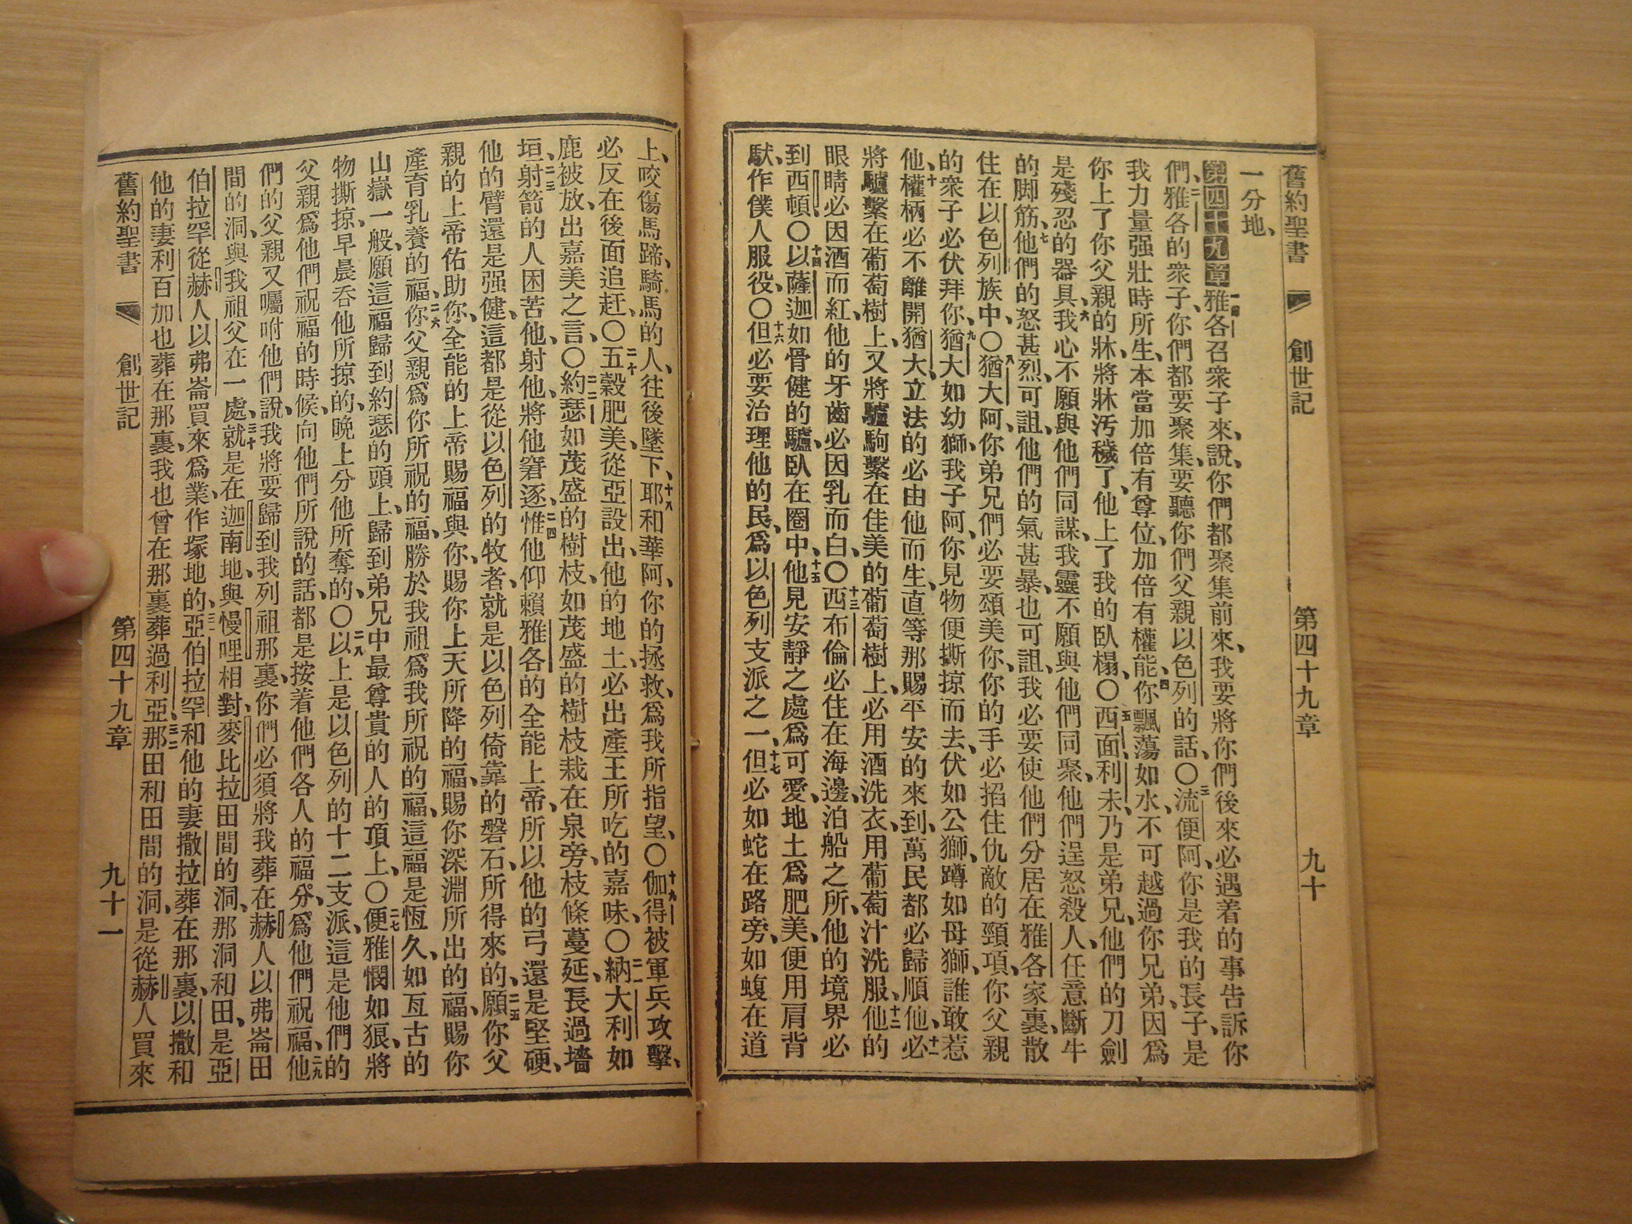 舊約聖書 創世記 第四十九章 九十
一分地、
第四十九章雅各召衆子來、說、你們都聚集前來、我要將你們後來必遇着的事告訴你
們、二雅各的衆子、你們都要聚集、要聽你們父親以色列的話、〇三流便阿、你是我的長子、是
我力量强壯時所生、本當加倍有尊位、加倍有權能、四你飄蕩如水、不可越過你兄弟、因爲
你上了你父親的牀、將牀汚穢了、他上了我的臥榻、〇五西面利未、乃是弟兄、他們的刀劍
是殘忍的器具、六我心不願與他們同謀、我靈不願與他們同聚、他們逞怒殺人、任意斷牛
的脚筋、七他們的怒甚烈、可詛、他們的氣甚暴、也可詛、我必要使他們分居在雅各家裏、散
住在以色列族中、〇八猶大阿、你弟兄們必要頌美你、你的手必搯住仇敵的頸項、你父親
的衆子必伏拜你、九猶大如幼獅、我子阿、你見物便撕掠而去、伏如公獅、蹲如母獅、誰敢惹
他、十權柄必不離開猶大、立法的必由他而生、直等那賜平安的來到、萬民都必歸順他、十一必
將驢繫在葡萄樹上、又將驢駒繫在佳美的葡萄樹上、必用酒洗衣、用葡萄汁洗服、十二他的
眼睛必因酒而紅、他的牙齒必因乳而白、〇十三西布倫必住在海邊泊船之所、他的境界必
到西頓、〇十四以薩迦如骨健的驢、臥在圈中、十五他見安靜之處爲可愛、地土爲肥美、便用肩背
馱、作僕人服役、〇十六但必要治理他的民、爲以色列支派之一、十七但必如蛇在路旁、如蝮在道
上、咬傷馬蹄、騎馬的人、往後墜下、十八耶和華阿、你的拯救、爲我所指望、〇十九伽得被軍兵攻擊、
必反在後面追赶、〇二十五穀肥美、從亞設出、他的地土、必出產王所吃的嘉味、〇二一納大利如
鹿被放、出嘉美之言、〇二二約瑟如茂盛的樹枝、如茂盛的樹枝栽在泉旁、枝條蔓延、長過墻
垣、二三射箭的人困苦他、射他、將他窘逐、二四惟他仰賴雅各的全能上帝、所以他的弓還是堅硬、
他的臂還是强健、這都是從以色列的牧者、就是以色列倚靠的磐石、所得來的、二五願你父
親的上帝佑助你、全能的上帝賜福與你、賜你上天所降的福、賜你深淵所出的福、賜你
產育乳養的福、二六你父親爲你所祝的福、勝於我祖爲我所祝的福、這福是恆久、如亙古的
山嶽一般、願這福歸到約瑟的頭上、歸到弟兄中最尊貴的人的頂上、〇二七便雅憫如狼、將
物撕掠、早晨吞他所掠的、晚上分他所奪的、〇二八以上是以色列的十二支派、這是他們的
父親爲他們祝福的時候、向他們所說的話、都是按着他們各人的福分、爲他們祝福、二九他
們的父親又囑咐他們說、我將要歸到我列祖那裏、你們必須將我葬在赫人以弗崙田
間的洞、與我祖父在一處、三十就是在迦南地、與慢哩相對、麥比拉田間的洞、那洞和田、是亞
伯拉罕從赫人以弗崙買來爲業、作塚地的、三一亞伯拉罕和他的妻撒拉葬在那裏、以撒和
他的妻利百加也葬在那裏、我也曾在那裏葬過利亞、三二那田和田間的洞、是從赫人買來
舊約聖書 創世記 第四十九章 九十一